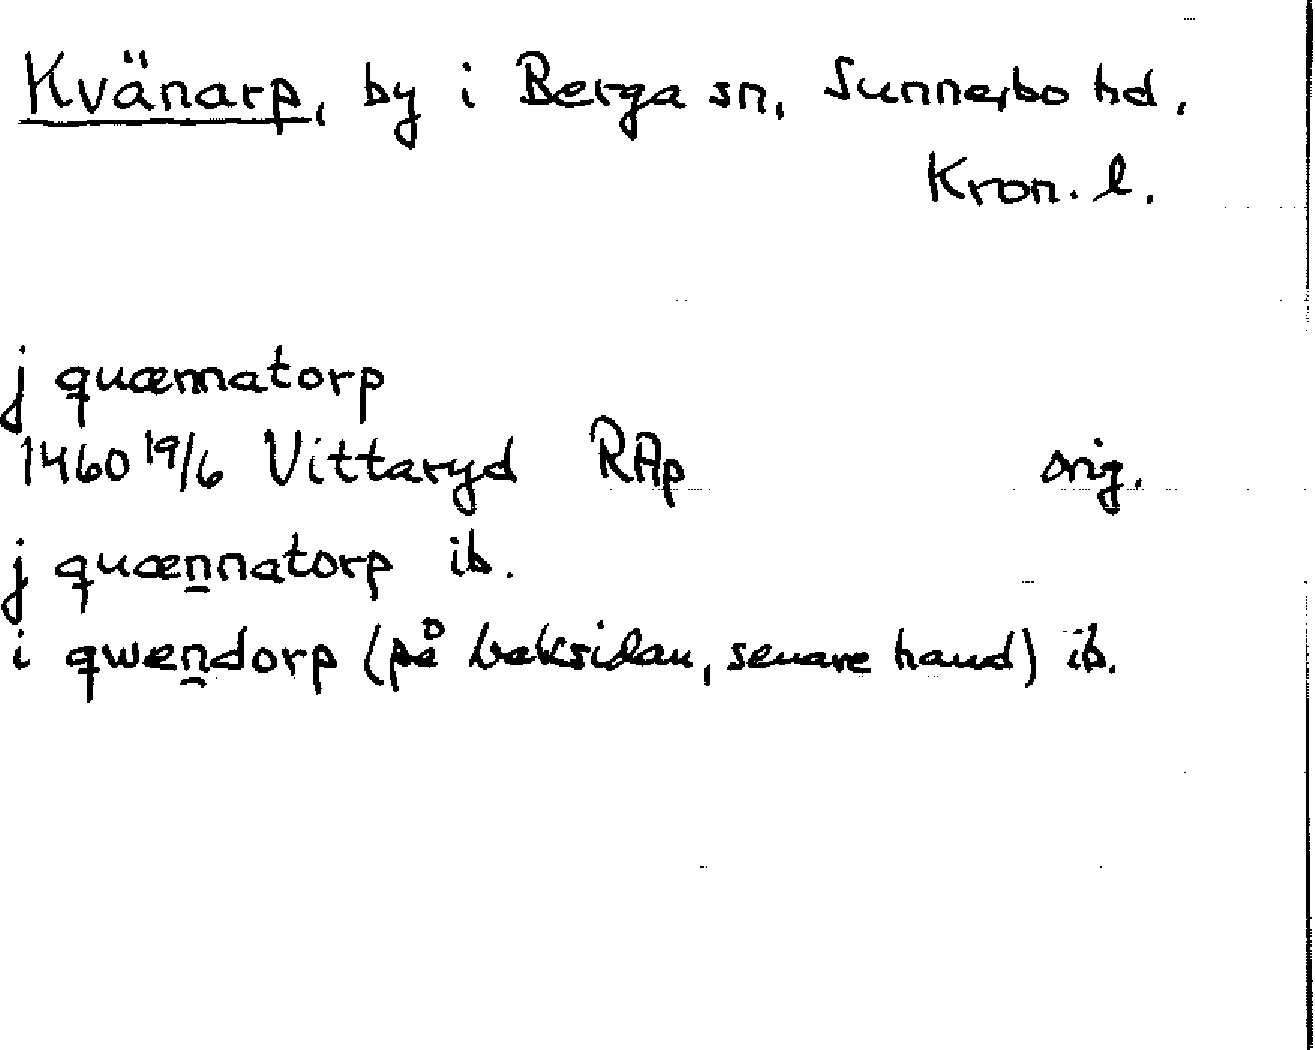 Kvänarp, by i Berga sn, Sunnerbo hd,
Kron. l.
j quænnatorp
1460 19/6 Vittaryd RAp orig.
j quænnatorp ib.
i qwendorp (på baksidan, senare hand) ib.